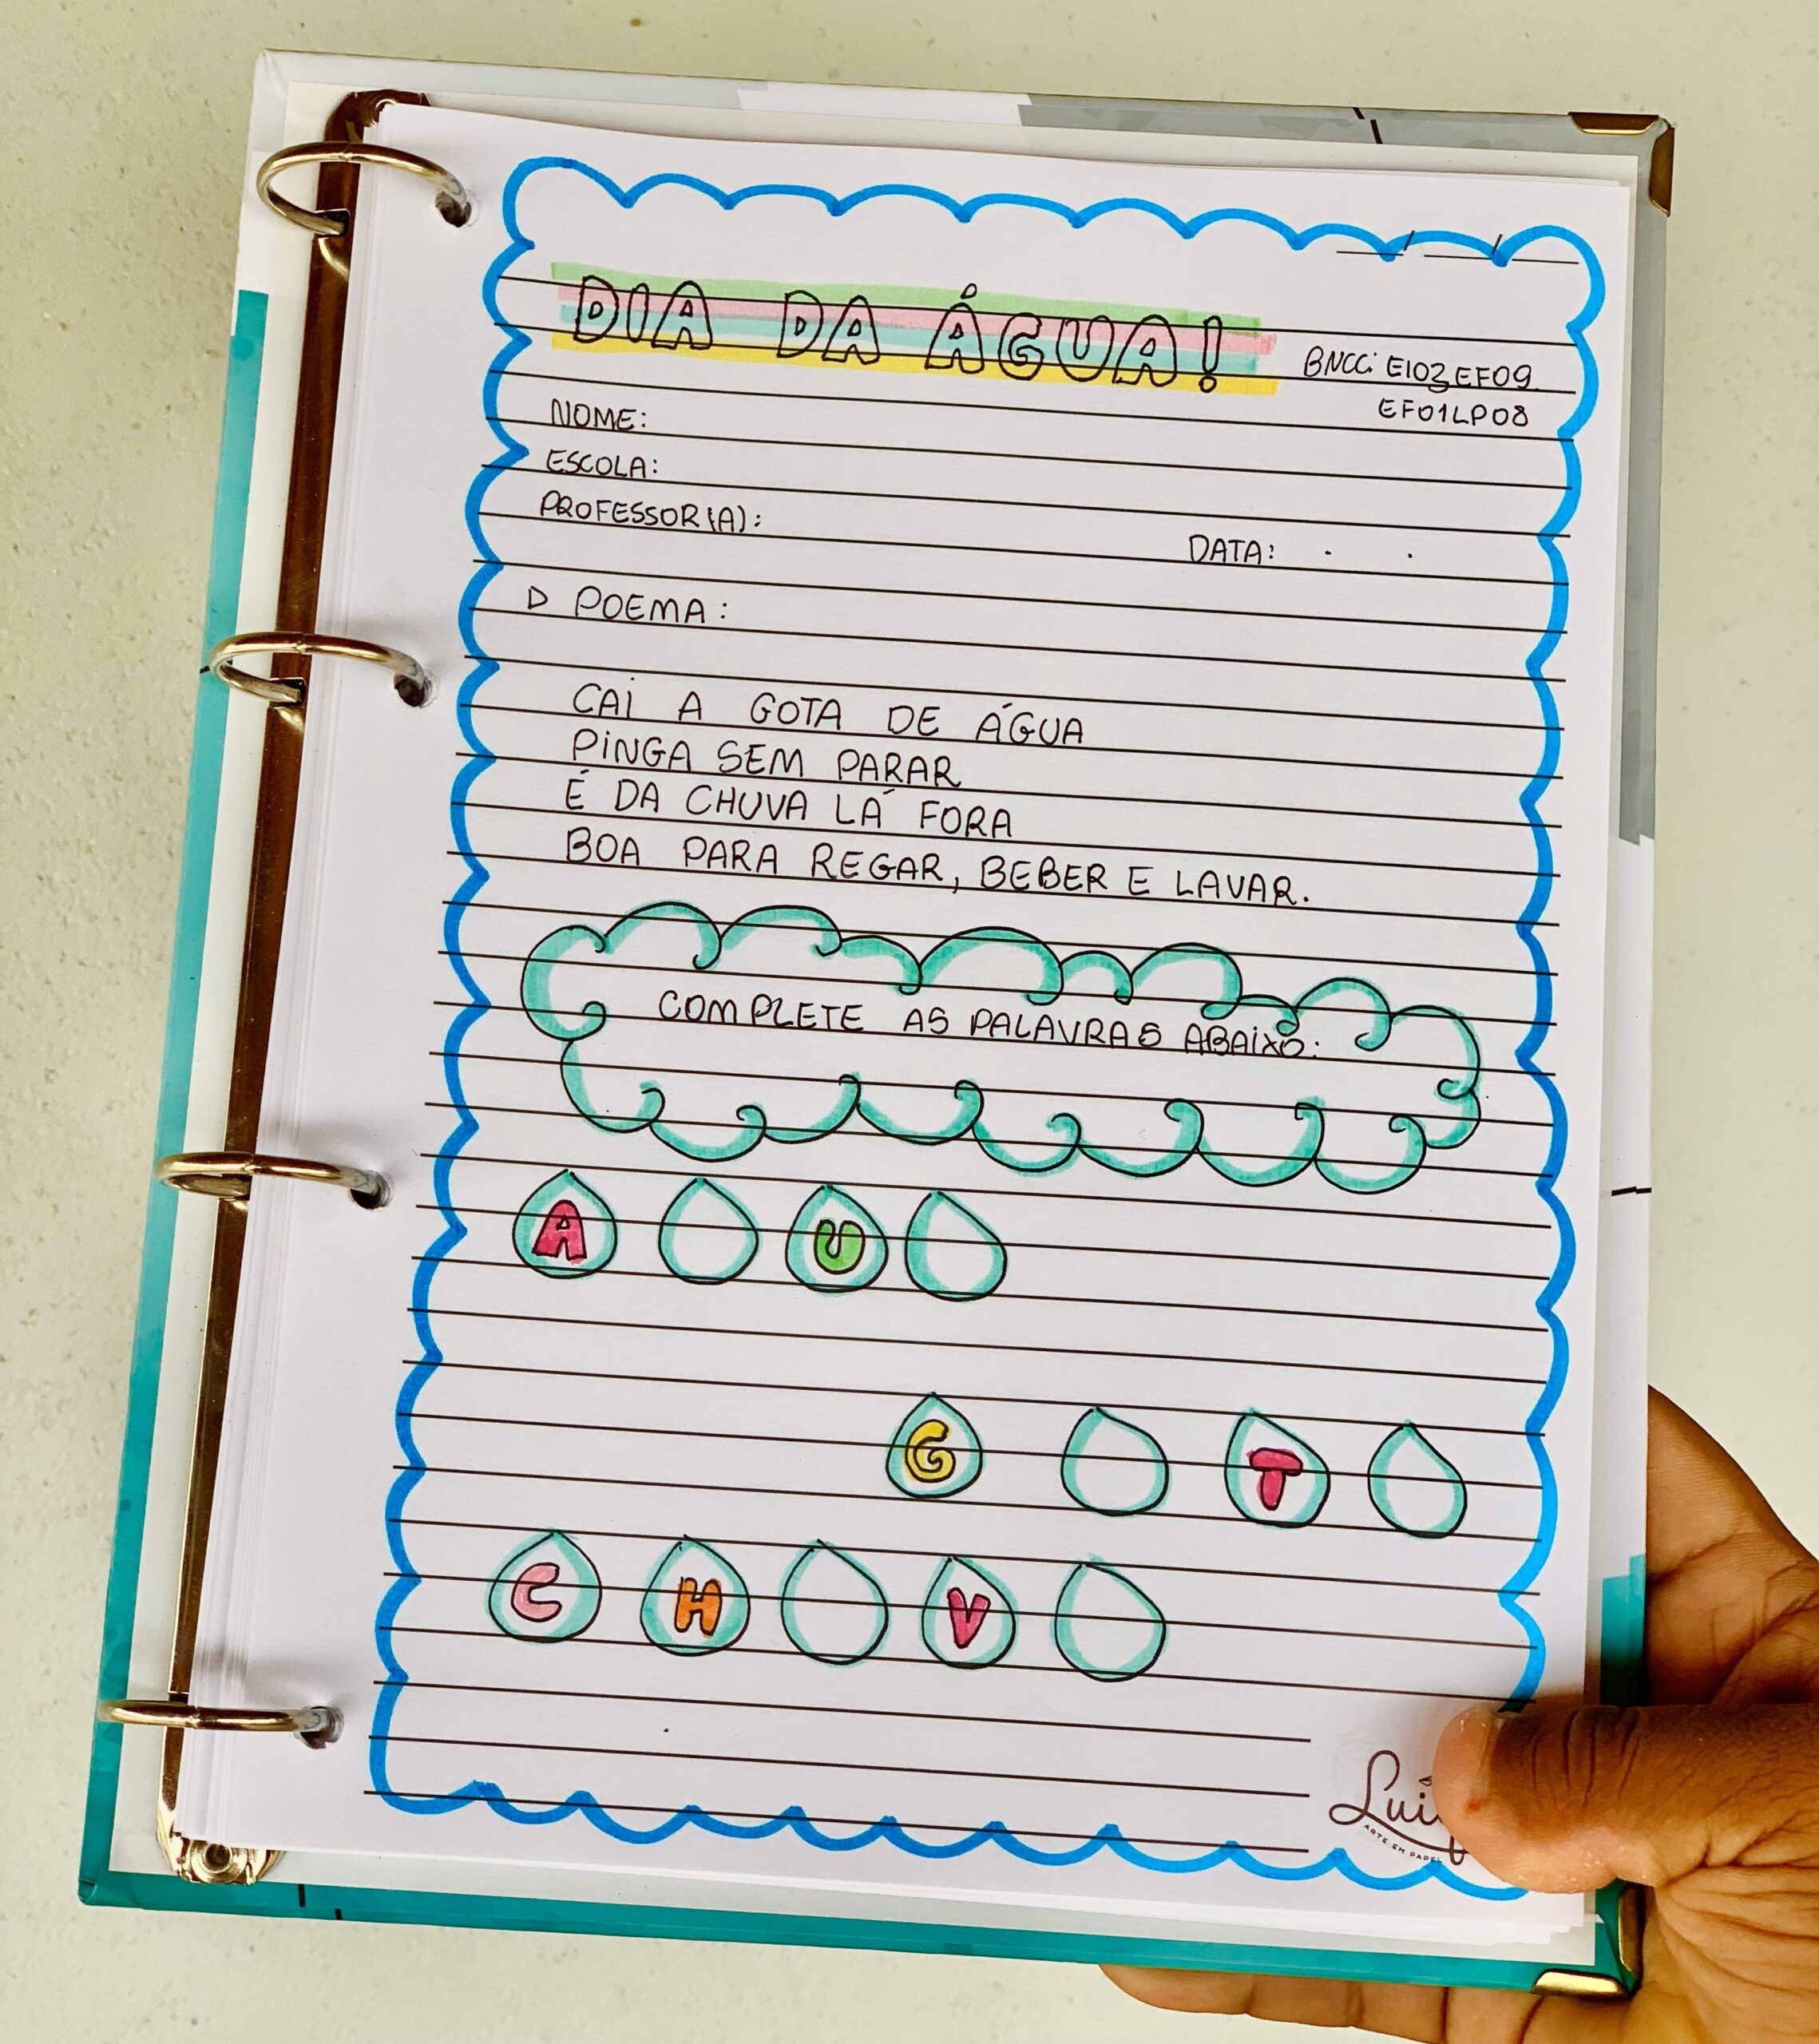 DIA DA ÁGUA!
BNCC: EI03EF09
EF01LP08
NOME:
ESCOLA:
PROFESSOR(A):
DATA: . .
▷ POEMA:
CAI A GOTA DE ÁGUA
PINGA SEM PARAR
É DA CHUVA LÁ FORA
BOA PARA REGAR, BEBER E LAVAR.
COMPLETE AS PALAVRAS ABAIXO:
A U
G T
C H V
ARTE EM PAPEL